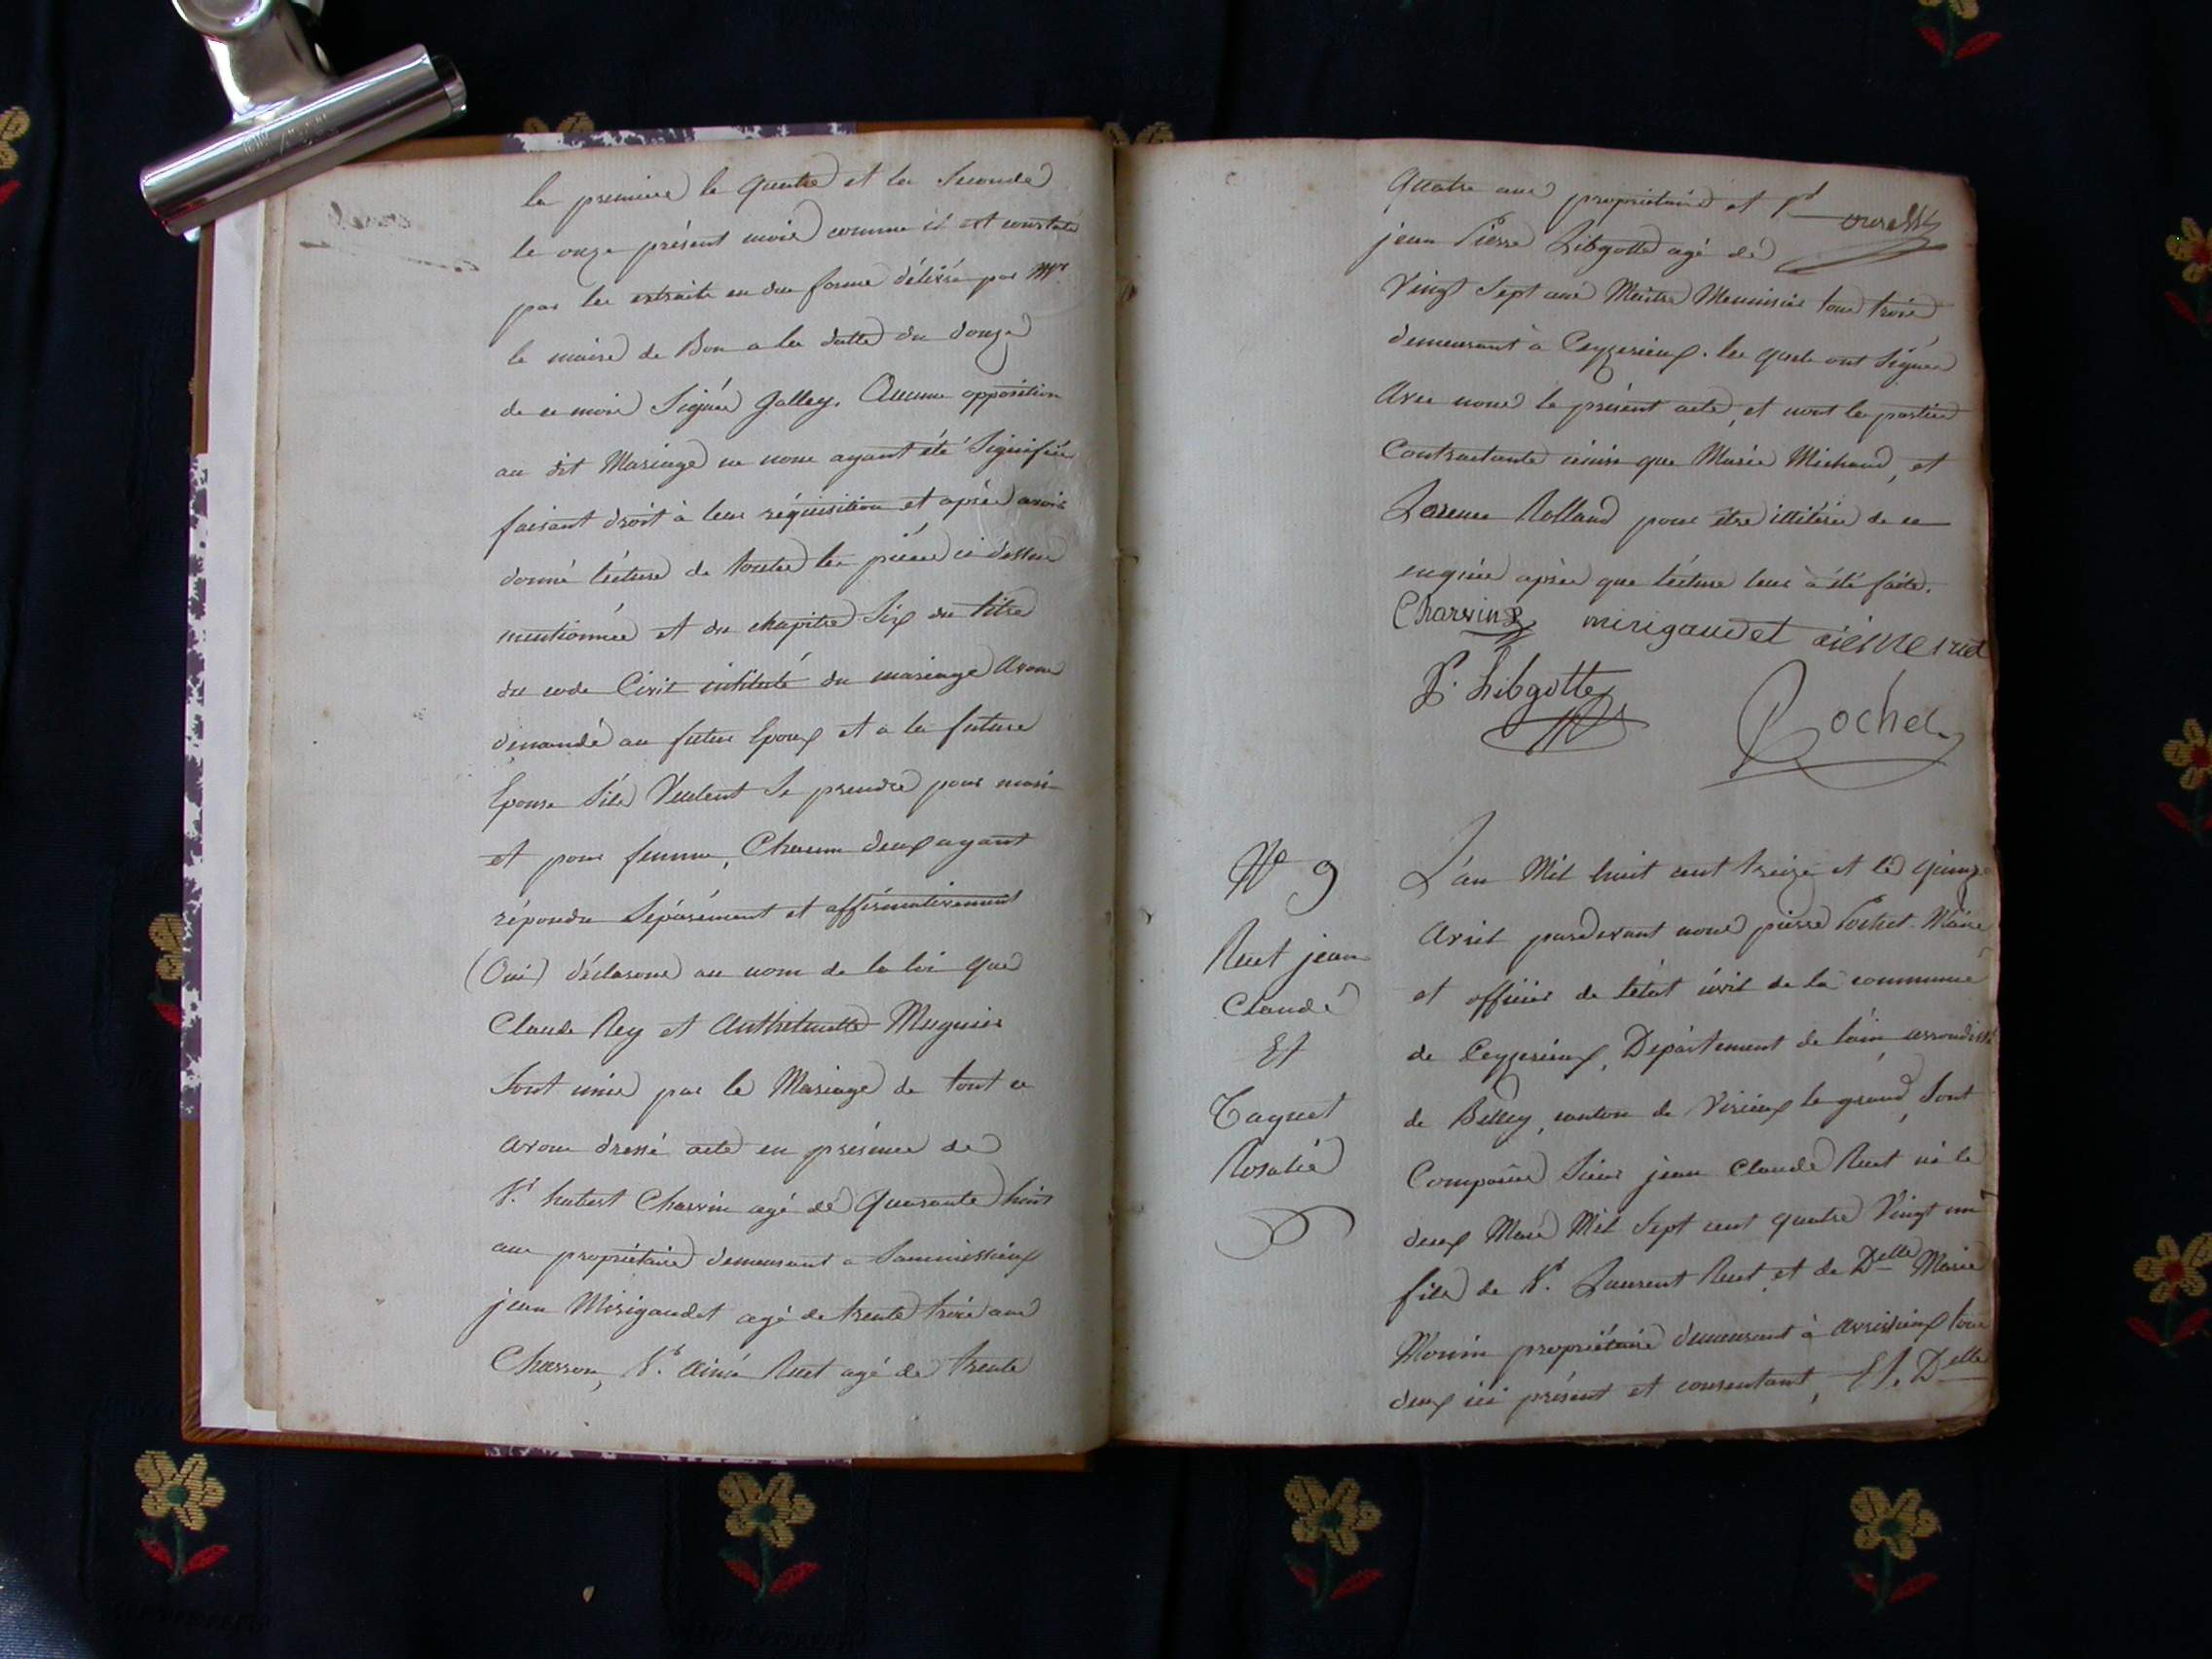 la premiere le quatre et la Seconde
le onze présent mois comme il est constaté
par les extraits en due forme délivré par Mr
le maire de Bon a la datte du douze
de ce mois Signée Galley. Aucune opposition
au dit Mariage ne nous ayant été Signifiée
faisant droit à leur réquisition et après avoir
donné lécture de toutes les piéces ci dessus
mentionnées et du chapitre Six du titre
du code Civil intitulé du mariage Avons
démandé au futur Epoux et a la future
Epouse S'ils Veulent Se prendre pour mari
et pour femme, Chacun deux ayant
répondu Séparément et affirmativement
(Oui) déclarons au nom de la loi que
Claude Rey et Anthelmette Mugnier
Sont unis par le Mariage de tout ce
avons dressé acte en présence de
Sr. hubert Charvin agé dé Quarante huit
ans propriétaire demeurant a
jean Mirigaudet agé de trente trois ans
Charron, Sr. Aimé Ruet agé de trente
Quatre ans propriétaire et Sr
jean Pierre Libgotte agé dé
Vingt Sept ans Maitre Menuisier tous trois
demeurant à Ceyzerieux. les quels ont Signés
Avec nous le présent acte, et non les parties
Contractante ainsi que Marie Michaud, et
Rolland pour être illiterés de ce
enquies après que lécture leur à été faite.
Charvin mirigaudet ruet
P. Libgotte
Rochet
N° 9
Ruet jean
Claudé
Et
Taquet
Rosalie
L'an Mil huit cent treize et le quinze
Avril pardevant nous pierre Maire
et officier de létat civil de la commune
de Ceyzerieux, Département de lain arrondisst
de Belley, canton de Virieux le grand, Sont
Comparus Sieur jean Claude Ruet né le
deux Mars Mil Sept cent quatre Vingt un
fils de Sr. Laurent Ruet et de Delle Marie
Monin propriétaire demeurant à Avrissieux tous
deux ici présent et consentant, Et. Delle